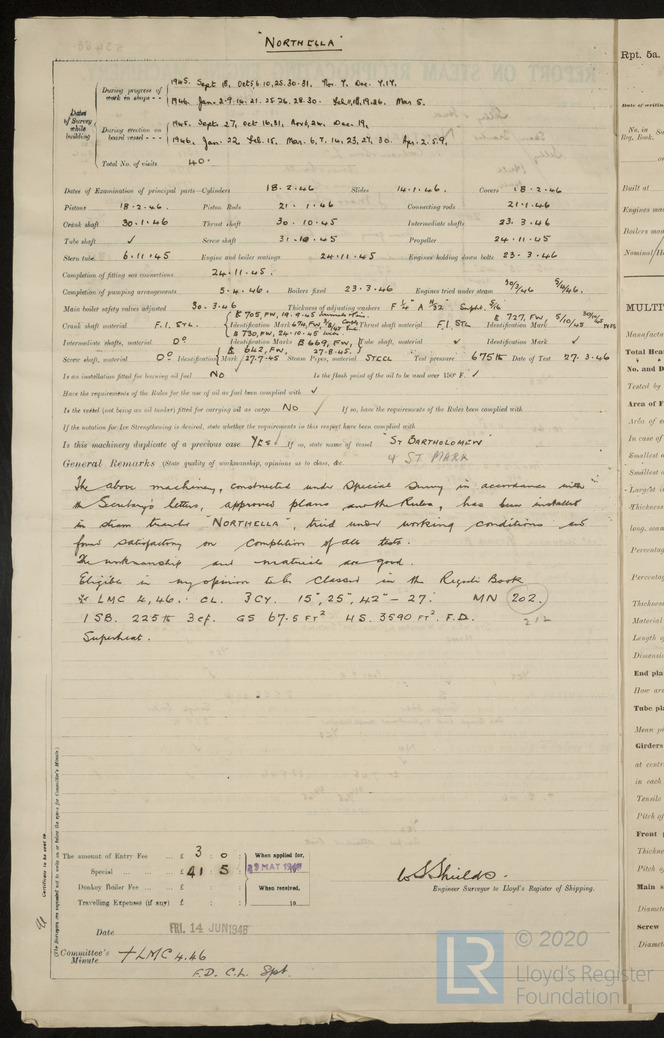 "NORTHELLA"
Dates of Survey while building
During progress of work in shops - - 1945. Sept 18, Oct 5,6,10,25,30,31, Nov. 7, Dec. 7,17,
1946. Jan. 2,9,14,21,25,26,28,30. Feb 1,11,18,19,26. Mar 5.
During erection on board vessel - - 1945. Sept. 27, Oct 16,31, Nov 6,24. Dec. 19,
1946. Jan. 22, Feb. 15, Mar. 6,7,14,23,27,30. Apr. 2,5,9,
Total No. of visits 40.
Dates of Examination of principal parts—Cylinders 18.2.46 Slides 14.1.46. Covers 18.2.46
Pistons 18.2.46. Piston Rods 21.1.46 Connecting rods 21.1.46
Crank shaft 30.1.46 Thrust shaft 30.10.45 Intermediate shafts 23.3.46
Tube shaft ✓ Screw shaft 31.10.45 Propeller 24.11.45
Stern tube 6.11.45 Engine and boiler seatings 24.11.45 Engines holding down bolts 23.3.46
Completion of fitting sea connections 24.11.45.
Completion of pumping arrangements 5.4.46. Boilers fixed 23.3.46 Engines tried under steam 30/3/46 5/4/46.
Main boiler safety valves adjusted 30.3.46 Thickness of adjusting washers
Crank shaft material F.I. STL. Identification Mark Thrust shaft material F.I. STL Identification Mark E 727, FW, 5/10/45
Intermediate shafts, material Dº Identification Marks E 669, FW, 27.8.45. Tube shaft, material ✓ Identification Mark ✓
Screw shaft, material Dº Identification Mark E 642, FW, 27.7.45 Steam Pipes, material STEEL Test pressure 675 lb Date of Test 27.3.46
Is an installation fitted for burning oil fuel NO Is the flash point of the oil to be used over 150° F. ✓
Have the requirements of the Rules for the use of oil as fuel been complied with ✓
Is the vessel (not being an oil tanker) fitted for carrying oil as cargo NO If so, have the requirements of the Rules been complied with
If the notation for Ice Strengthening is desired, state whether the requirements in this respect have been complied with
Is this machinery duplicate of a previous case YES If so, state name of vessel "ST BARTHOLOMEW"
& ST MARK
General Remarks (State quality of workmanship, opinions as to class, &c.
The above machinery, constructed under Special Survey in accordance with
the Secretary's letters, approved plans and the Rules, has been installed
in steam trawler "NORTHELLA", tried under working conditions and
found satisfactory on completion of all tests.
The workmanship and materials are good.
Eligible in my opinion to be classed in the Register Book
LMC 4,46. CL. 3CY. 15", 25", 42" – 27." MN 202.
1 SB. 225 lb 3 cf. GS 67.5 FT² HS. 3590 FT². F.D. 212
Superheat.
The amount of Entry Fee ... £ 3 : 0 : When applied for,
Special ... ... £ 41 : 5 : 29 MAY 1946
Donkey Boiler Fee ... ... £ : : When received,
Travelling Expenses (if any) £ : : 19
W S Shields.
Engineer Surveyor to Lloyd's Register of Shipping.
Date FRI. 14 JUN 1946
Committee's Minute + LMC 4.46
F.D. C.L. Spt.
Certificate to be sent to
(The Surveyors are requested not to write on or below the space for Committee's Minute.)
Rpt. 5a.
Date of writing
No. in Reg. Book.
Built at
Engines ma
Boilers mad
Nominal H
MULTI
Manufactu
Total Hea
No. and D
Tested by
Area of F
Area of e
In case of
Smallest d
Smallest d
Largest i
Thickness
long. seam
Percentag
Percentag
Thickness
Material
Length o
Dimensio
End plat
How are
Tube pla
Mean p
Girders
at centr
in each
Tensile
Pitch of
Front p
Thickne
Pitch of
Main s
Diamete
Screw
Diamet
LR
© 2020
Lloyd's Register
Foundation